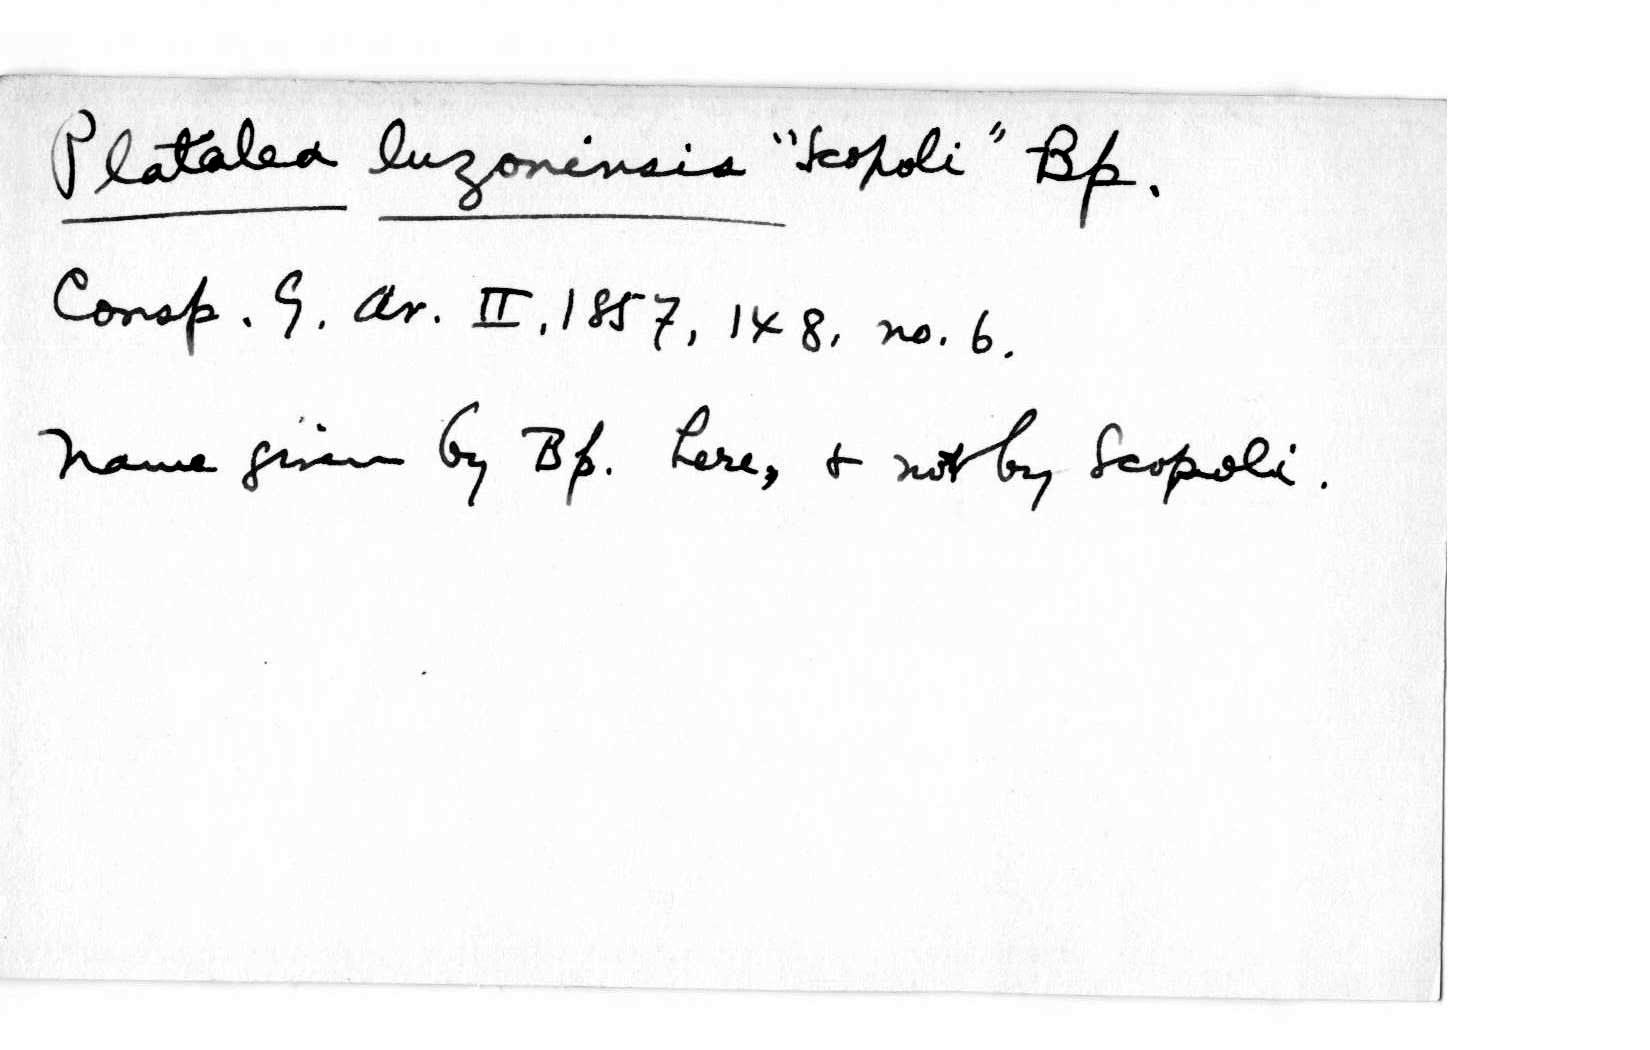 Platalea luzonensis "Scopoli" Bp.
Consp. G. Av. II, 1857, 148, no. 6.
Name given by Bp. here, & not by Scopoli.